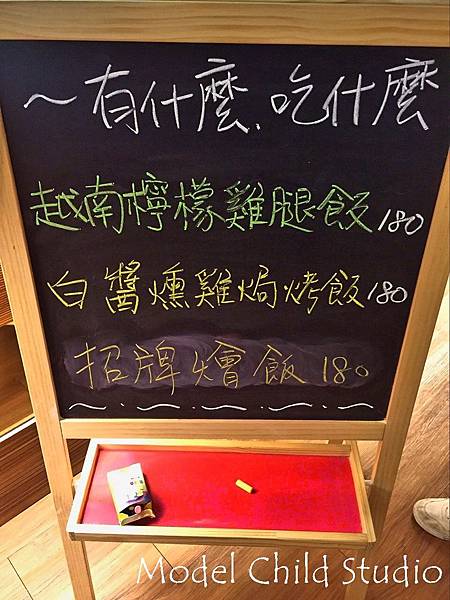 ～有什麼、吃什麼
越南檸檬雞腿飯180
白醬燻雞焗烤飯180
招牌燴飯 180
Model Child Studio